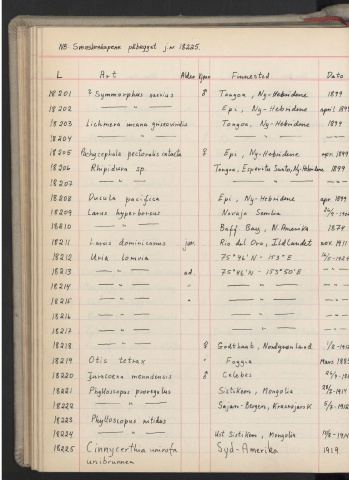 NB Smaabokapene påbegynt j.nr. 18225.
L Art Alder Kjønn Finnested Dato
18201 ? Symmorphus naevius ♂ Tongoa, Ny-Hebridene 1899
18202 — " — Epi, Ny-Hebridene april 1899
18203 Lichmera incana griseoviridis Tongoa, Ny-Hebridene 1899
18204 — " — — " —
18205 Pachycephala pectoralis intacta ♀ Epi, Ny-Hebridene apr. 1899
18206 Rhipidura sp. Tongoa, Espiritu Santo, Ny-Hebridene 1899
18207 — " — — " —
18208 Ducula pacifica Epi, Ny-Hebridene apr. 1899
18209 Larus hyperboreus Novaja Semlia
18210 — " — Baff. Bay, N. Amerika 1874
18211 Larus dominicanus juv. Rio del Oro, Ildlandet nov. 1911
18212 Uria lomvia 75°46'N - 153°E
18213 — " — ad. 75°46'N - 153°50'E — " —
18214 — " — " — " — — " —
18215 — " — " — " — — " —
18216 — " — — " — — " —
18217 — " — — " — — " —
18218 — " — ♀ Godthaab, Nordgrønland
18219 Otis tetrax " Foggia Mars 1883
18220 Turacoena menadensis ♂ Celebes
18221 Phylloscopus proregulus Sistikem, Mongolia
18222 — " — Sajan-Bergen, Krasnojarsk
18223 Phylloscopus nitidus
18224 — " — Ust Sistikem, Mongolia
18225 Cinnycerthia unirufa Syd-Amerika 1919
unibrunnea